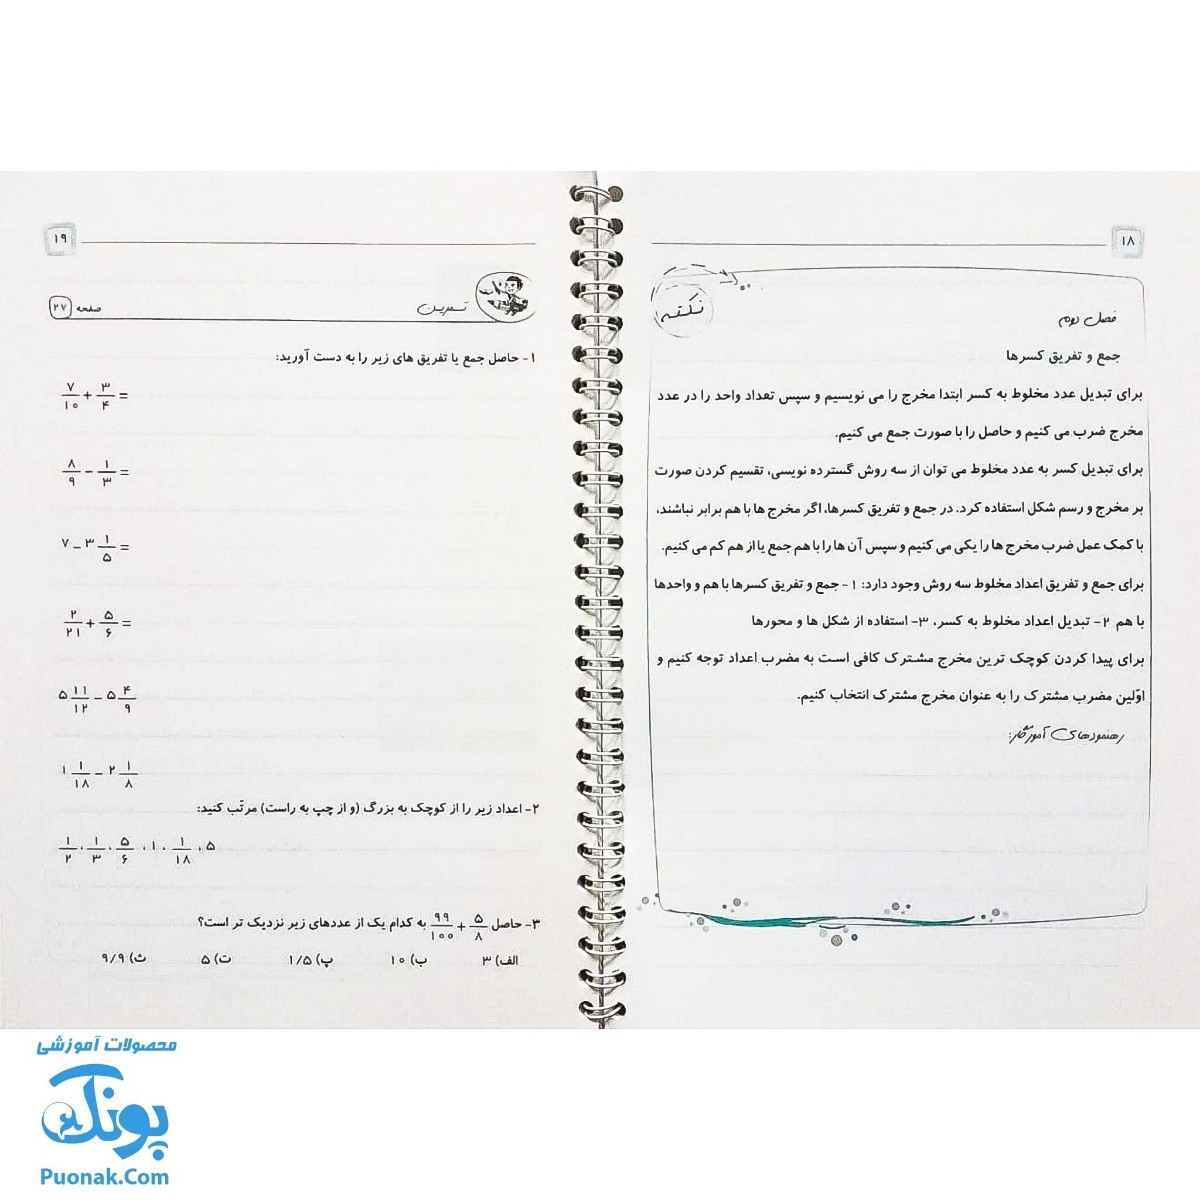 ۱۸
نکته
فصل دوم
جمع و تفریق کسرها
برای تبدیل عدد مخلوط به کسر ابتدا مخرج را می نویسیم و سپس تعداد واحد را در عدد
مخرج ضرب می کنیم و حاصل را با صورت جمع می کنیم.
برای تبدیل کسر به عدد مخلوط می توان از سه روش گسترده نویسی، تقسیم کردن صورت
بر مخرج و رسم شکل استفاده کرد. در جمع و تفریق کسرها، اگر مخرج ها با هم برابر نباشند،
با کمک عمل ضرب مخرج ها را یکی می کنیم و سپس آن ها را با هم جمع یا از هم کم می کنیم.
برای جمع و تفریق اعداد مخلوط سه روش وجود دارد: ۱- جمع و تفریق کسرها با هم و واحدها
با هم ۲- تبدیل اعداد مخلوط به کسر، ۳- استفاده از شکل ها و محورها
برای پیدا کردن کوچک ترین مخرج مشترک کافی است به مضرب اعداد توجه کنیم و
اوّلین مضرب مشترک را به عنوان مخرج مشترک انتخاب کنیم.
رهنمودهای آموزگار:
۱۹
تمرین
صفحه ۲۷
۱- حاصل جمع یا تفریق های زیر را به دست آورید:
۷/۱۰ + ۳/۴ =
۸/۹ - ۱/۳ =
۷ - ۳ ۱/۵ =
۲/۲۱ + ۵/۶ =
۵ ۱۱/۱۲ - ۵ ۴/۹
۱ ۱/۱۸ - ۲ ۱/۸
۲- اعداد زیر را از کوچک به بزرگ (و از چپ به راست) مرتّب کنید:
۱/۲ ، ۱/۳ ، ۵/۶ ، ۱ ، ۱/۱۸ ، ۵
۳- حاصل ۵/۸ + ۹۹/۱۰۰ به کدام یک از عددهای زیر نزدیک تر است؟
الف) ۳ ب) ۱۰ پ) ۱/۵ ت) ۵ ث) ۹/۹
محصولات آموزشی
پونک
Puonak.Com